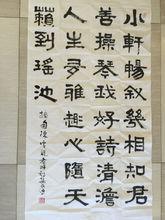 小軒暢敘幾相知君
善操琴我好詩清澹
人生多雅趣心隨天
籟到瑤池